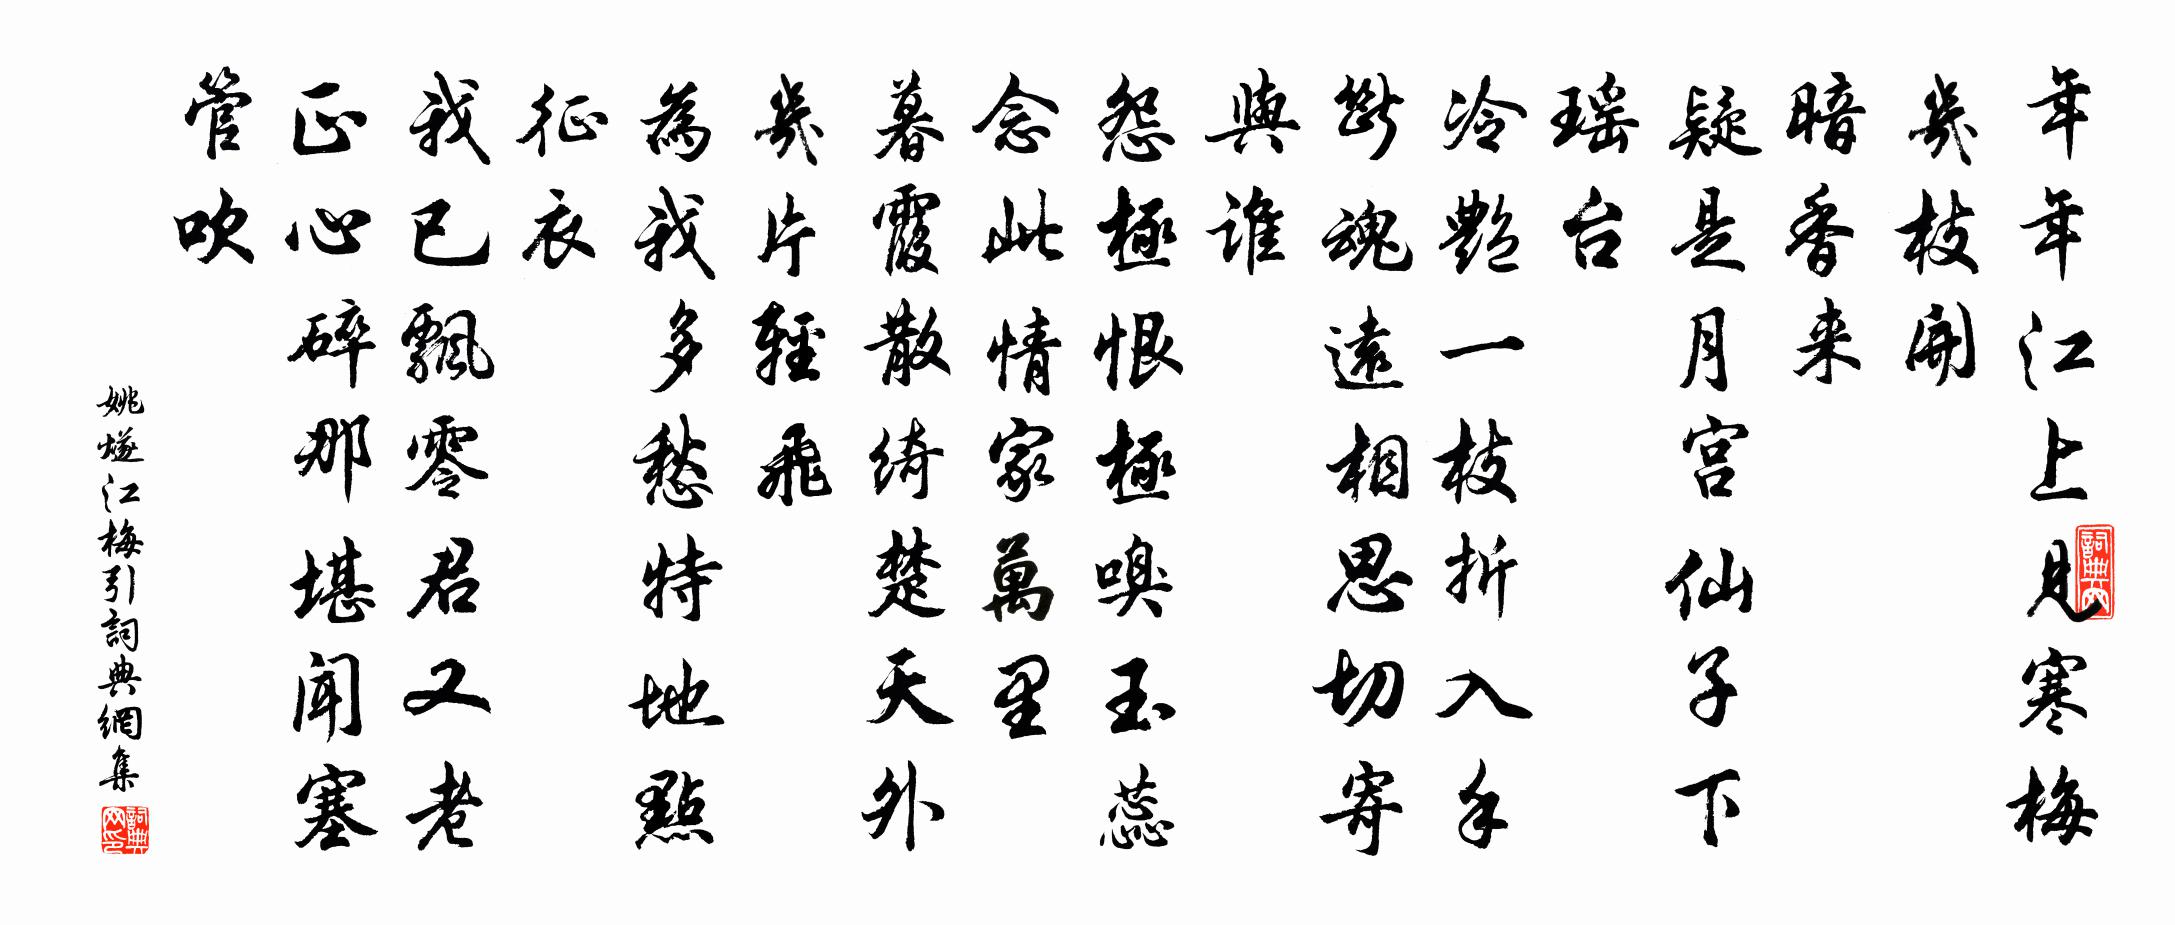 年年江上見寒梅
幾枝開
暗香来
疑是月宫仙子下
瑶台
冷艷一枝折入手
斷魂遠相思切寄
與誰
怨極恨極嗅玉蕊
念此情家萬里
暮霞散綺楚天外
幾片輕飛
為我多愁特地點
征衣
我已飄零君又老
正心碎那堪聞塞
管吹
姚燧江梅引詞典網集
詞典网
詞典网印